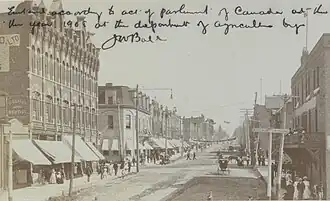 Entered accordig to act of parliment of Canada at the
the year 1908 at the department of Agriculture by
J W Bald